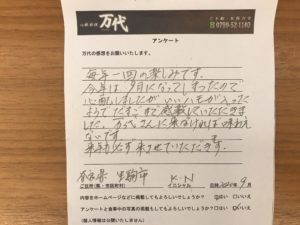 万代
0799-52-1140
アンケート
万代の感想をお願いいたします。
毎年一回の楽しみです。
今年は9月になってしまったので
心配しましたが、いいハモが入った
ようでたっぷり堪能していただきま
した。万代さんに来なければ味わえ
ないです。
来年も必ず来させていただきます。
奈良県 生駒市 K・N 9月
ご住所(県・市区町村) イニシャル
内容をホームページなどに掲載してもよろしいでしょうか? はい いいえ
アンケートと食事中の写真の掲載もしてもよろしいでしょうか? はい いいえ
(個人情報は公開いたしません)